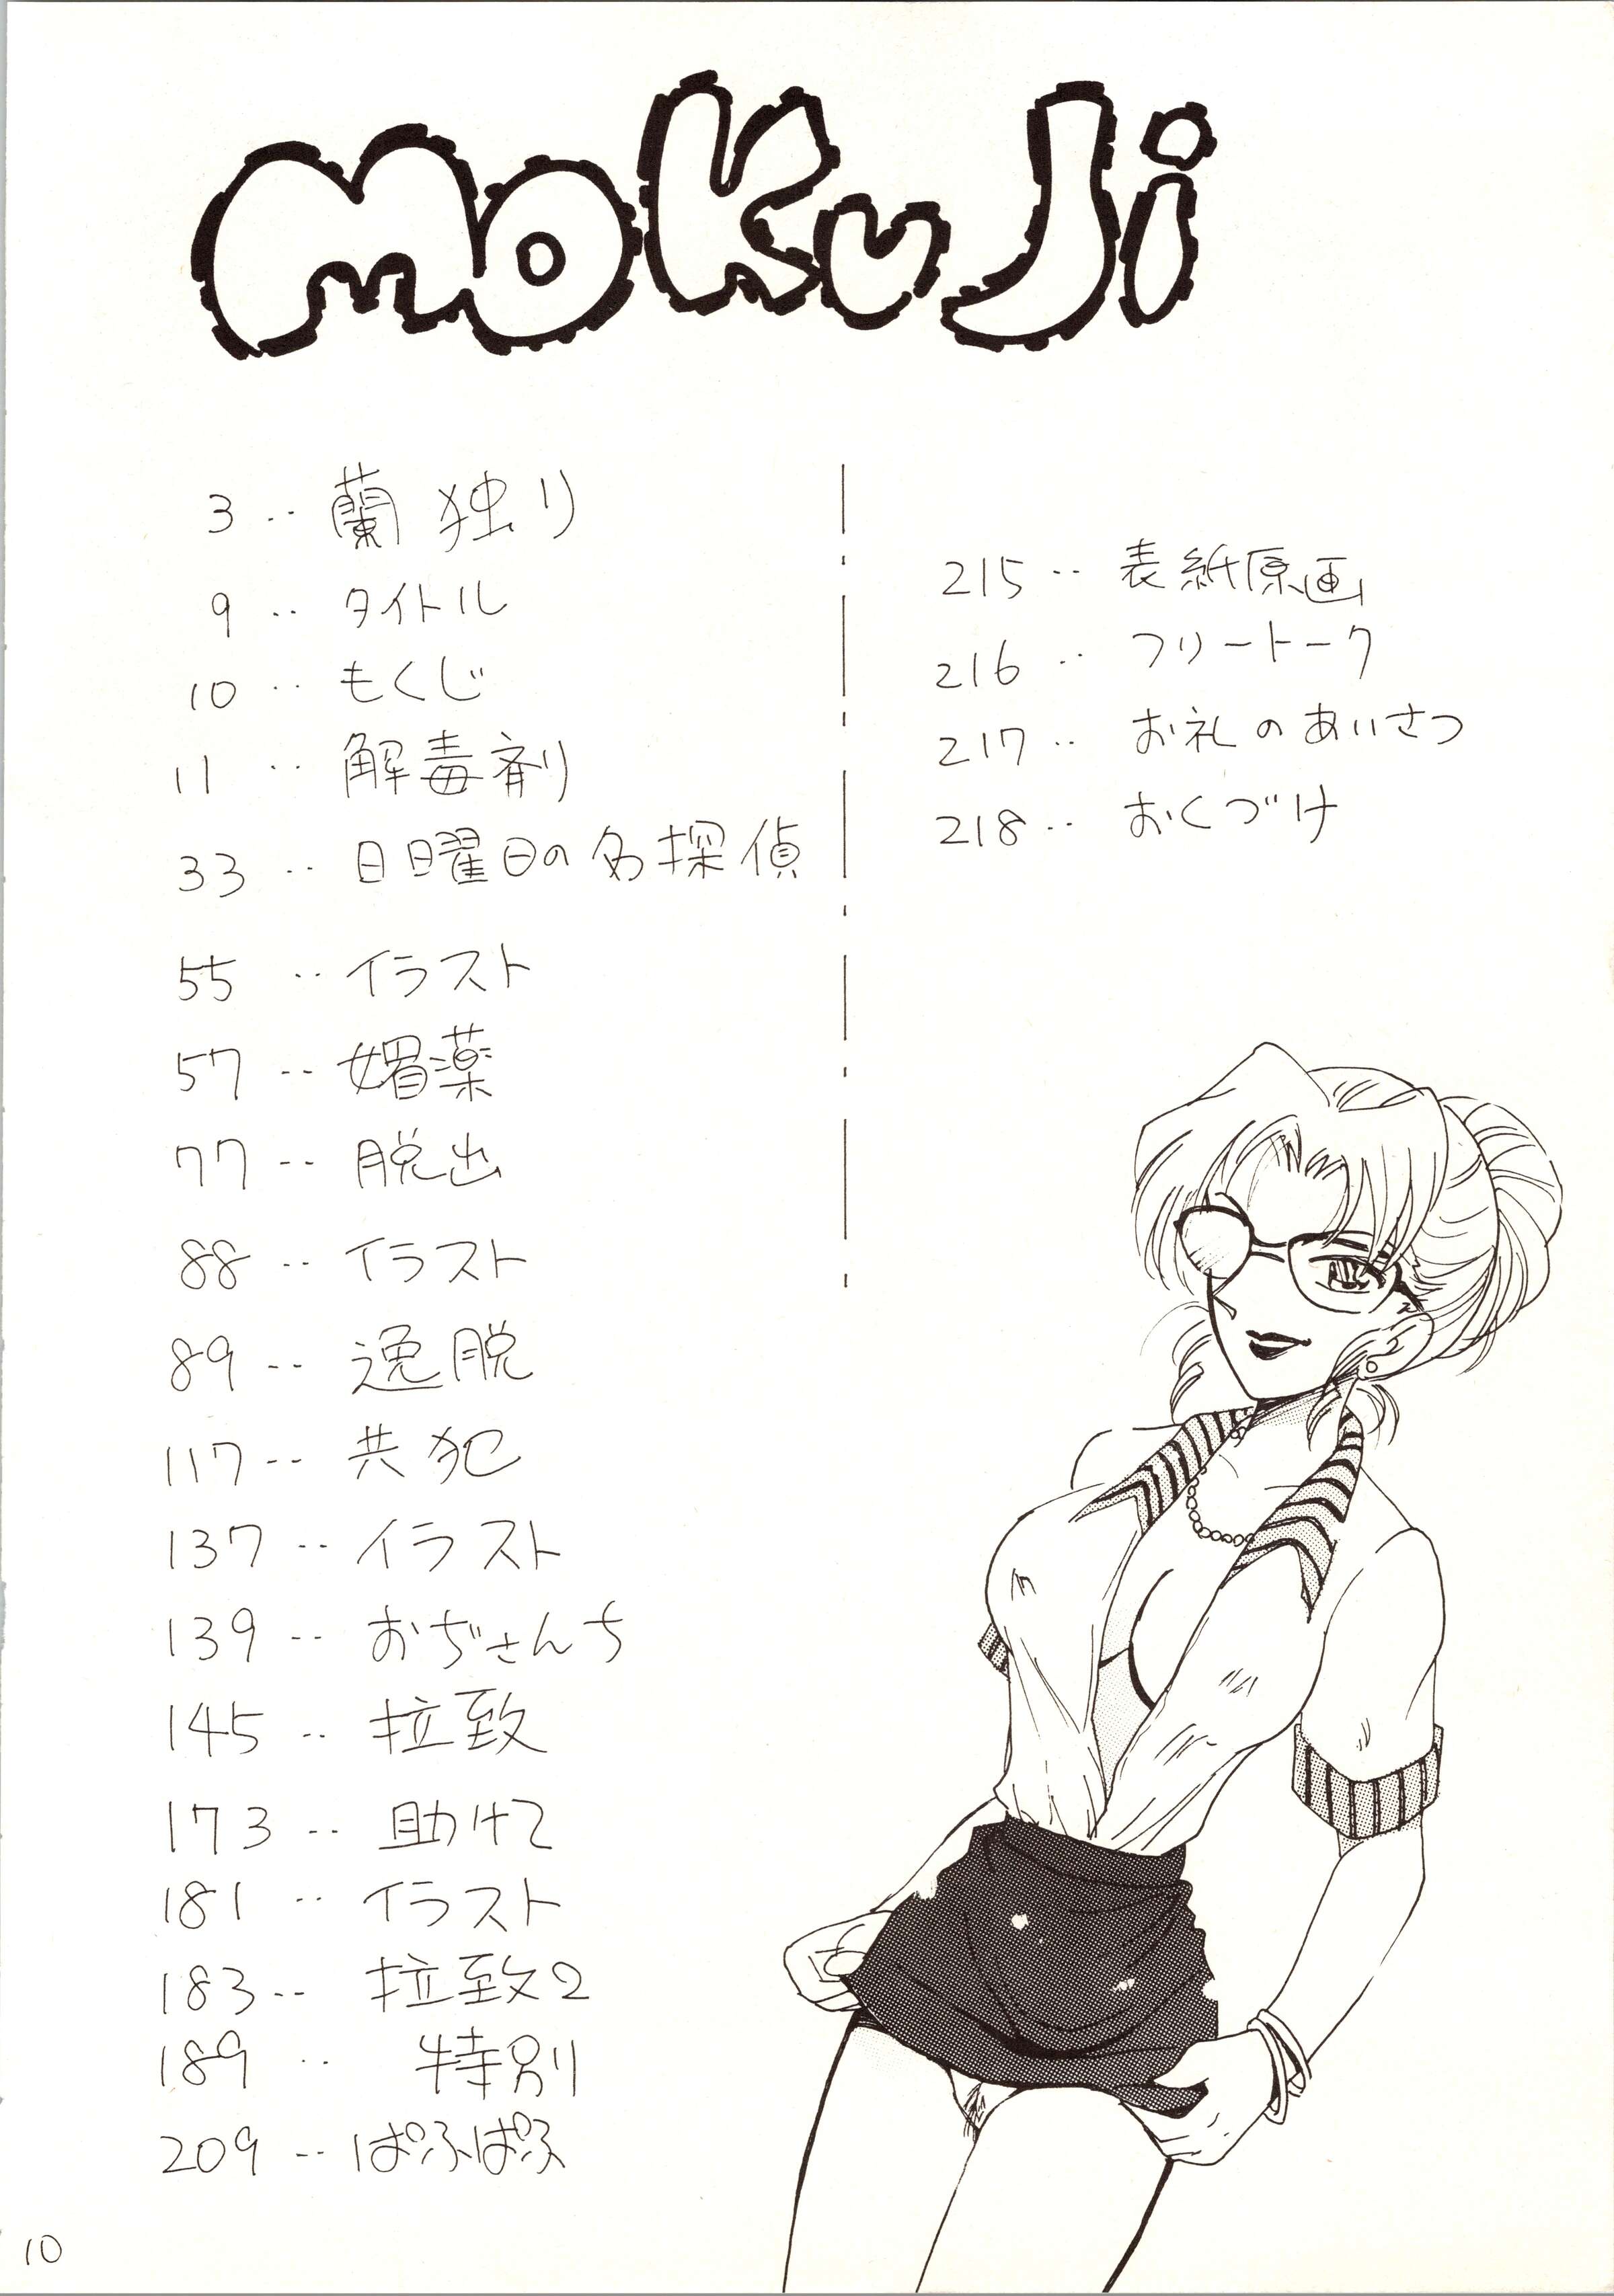 MoKuJi
3 ‥ 蘭独り
9 ‥ タイトル
10 ‥ もくじ
11 ‥ 解毒剤
33 ‥ 日曜日の名探偵
55 ‥ イラスト
57 ‥ 媚薬
77 ‥ 脱出
88 ‥ イラスト
89 ‥ 逸脱
117 ‥ 共犯
137 ‥ イラスト
139 ‥ おぢさんち
145 ‥ 拉致
173 ‥ 助けて
181 ‥ イラスト
183 ‥ 拉致2
189 ‥ 特別
209 ‥ ぱふぱふ
215 ‥ 表紙原画
216 ‥ フリートーク
217 ‥ お礼のあいさつ
218 ‥ おくづけ
10